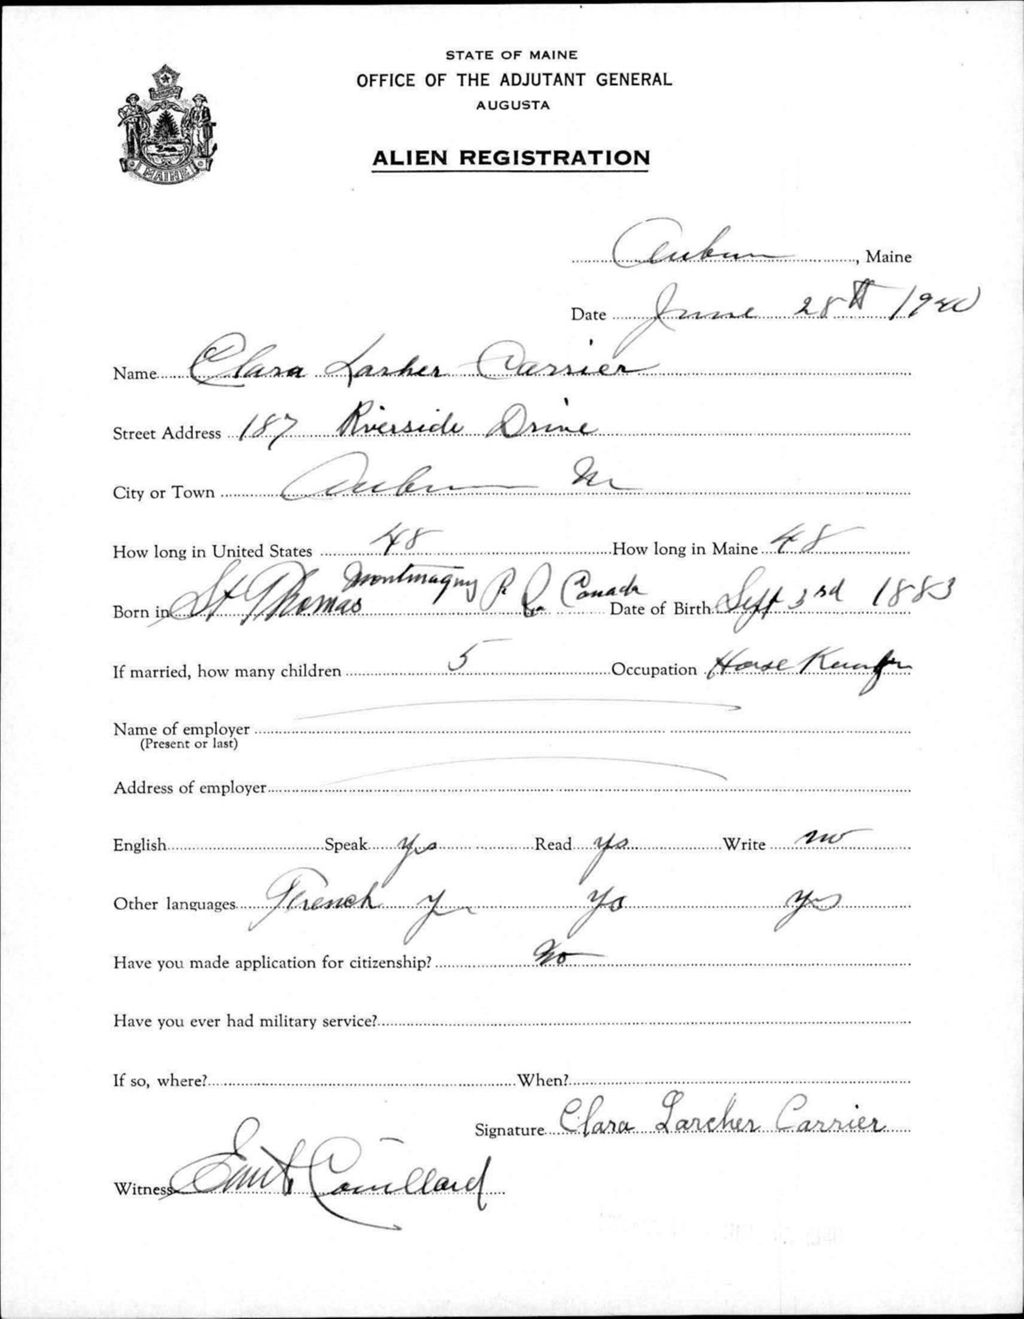 STATE OF MAINE
OFFICE OF THE ADJUTANT GENERAL
AUGUSTA
ALIEN REGISTRATION
MAINE
Auburn, Maine
Date June 28th 1940
Name Clara Larher Carrier
Street Address 187 Riverside Drive
City or Town Auburn Me
How long in United States 48 How long in Maine 48
Born in St Thomas Montmagny P Q Canada Date of Birth Sept 3rd 1883
If married, how many children 5 Occupation House
Name of employer
(Present or last)
Address of employer
English Speak yes Read yes Write no
Other languages French yes yes yes
Have you made application for citizenship? No
Have you ever had military service?
If so, where? When?
Signature Clara Larcher Carrier
Witness Couillard